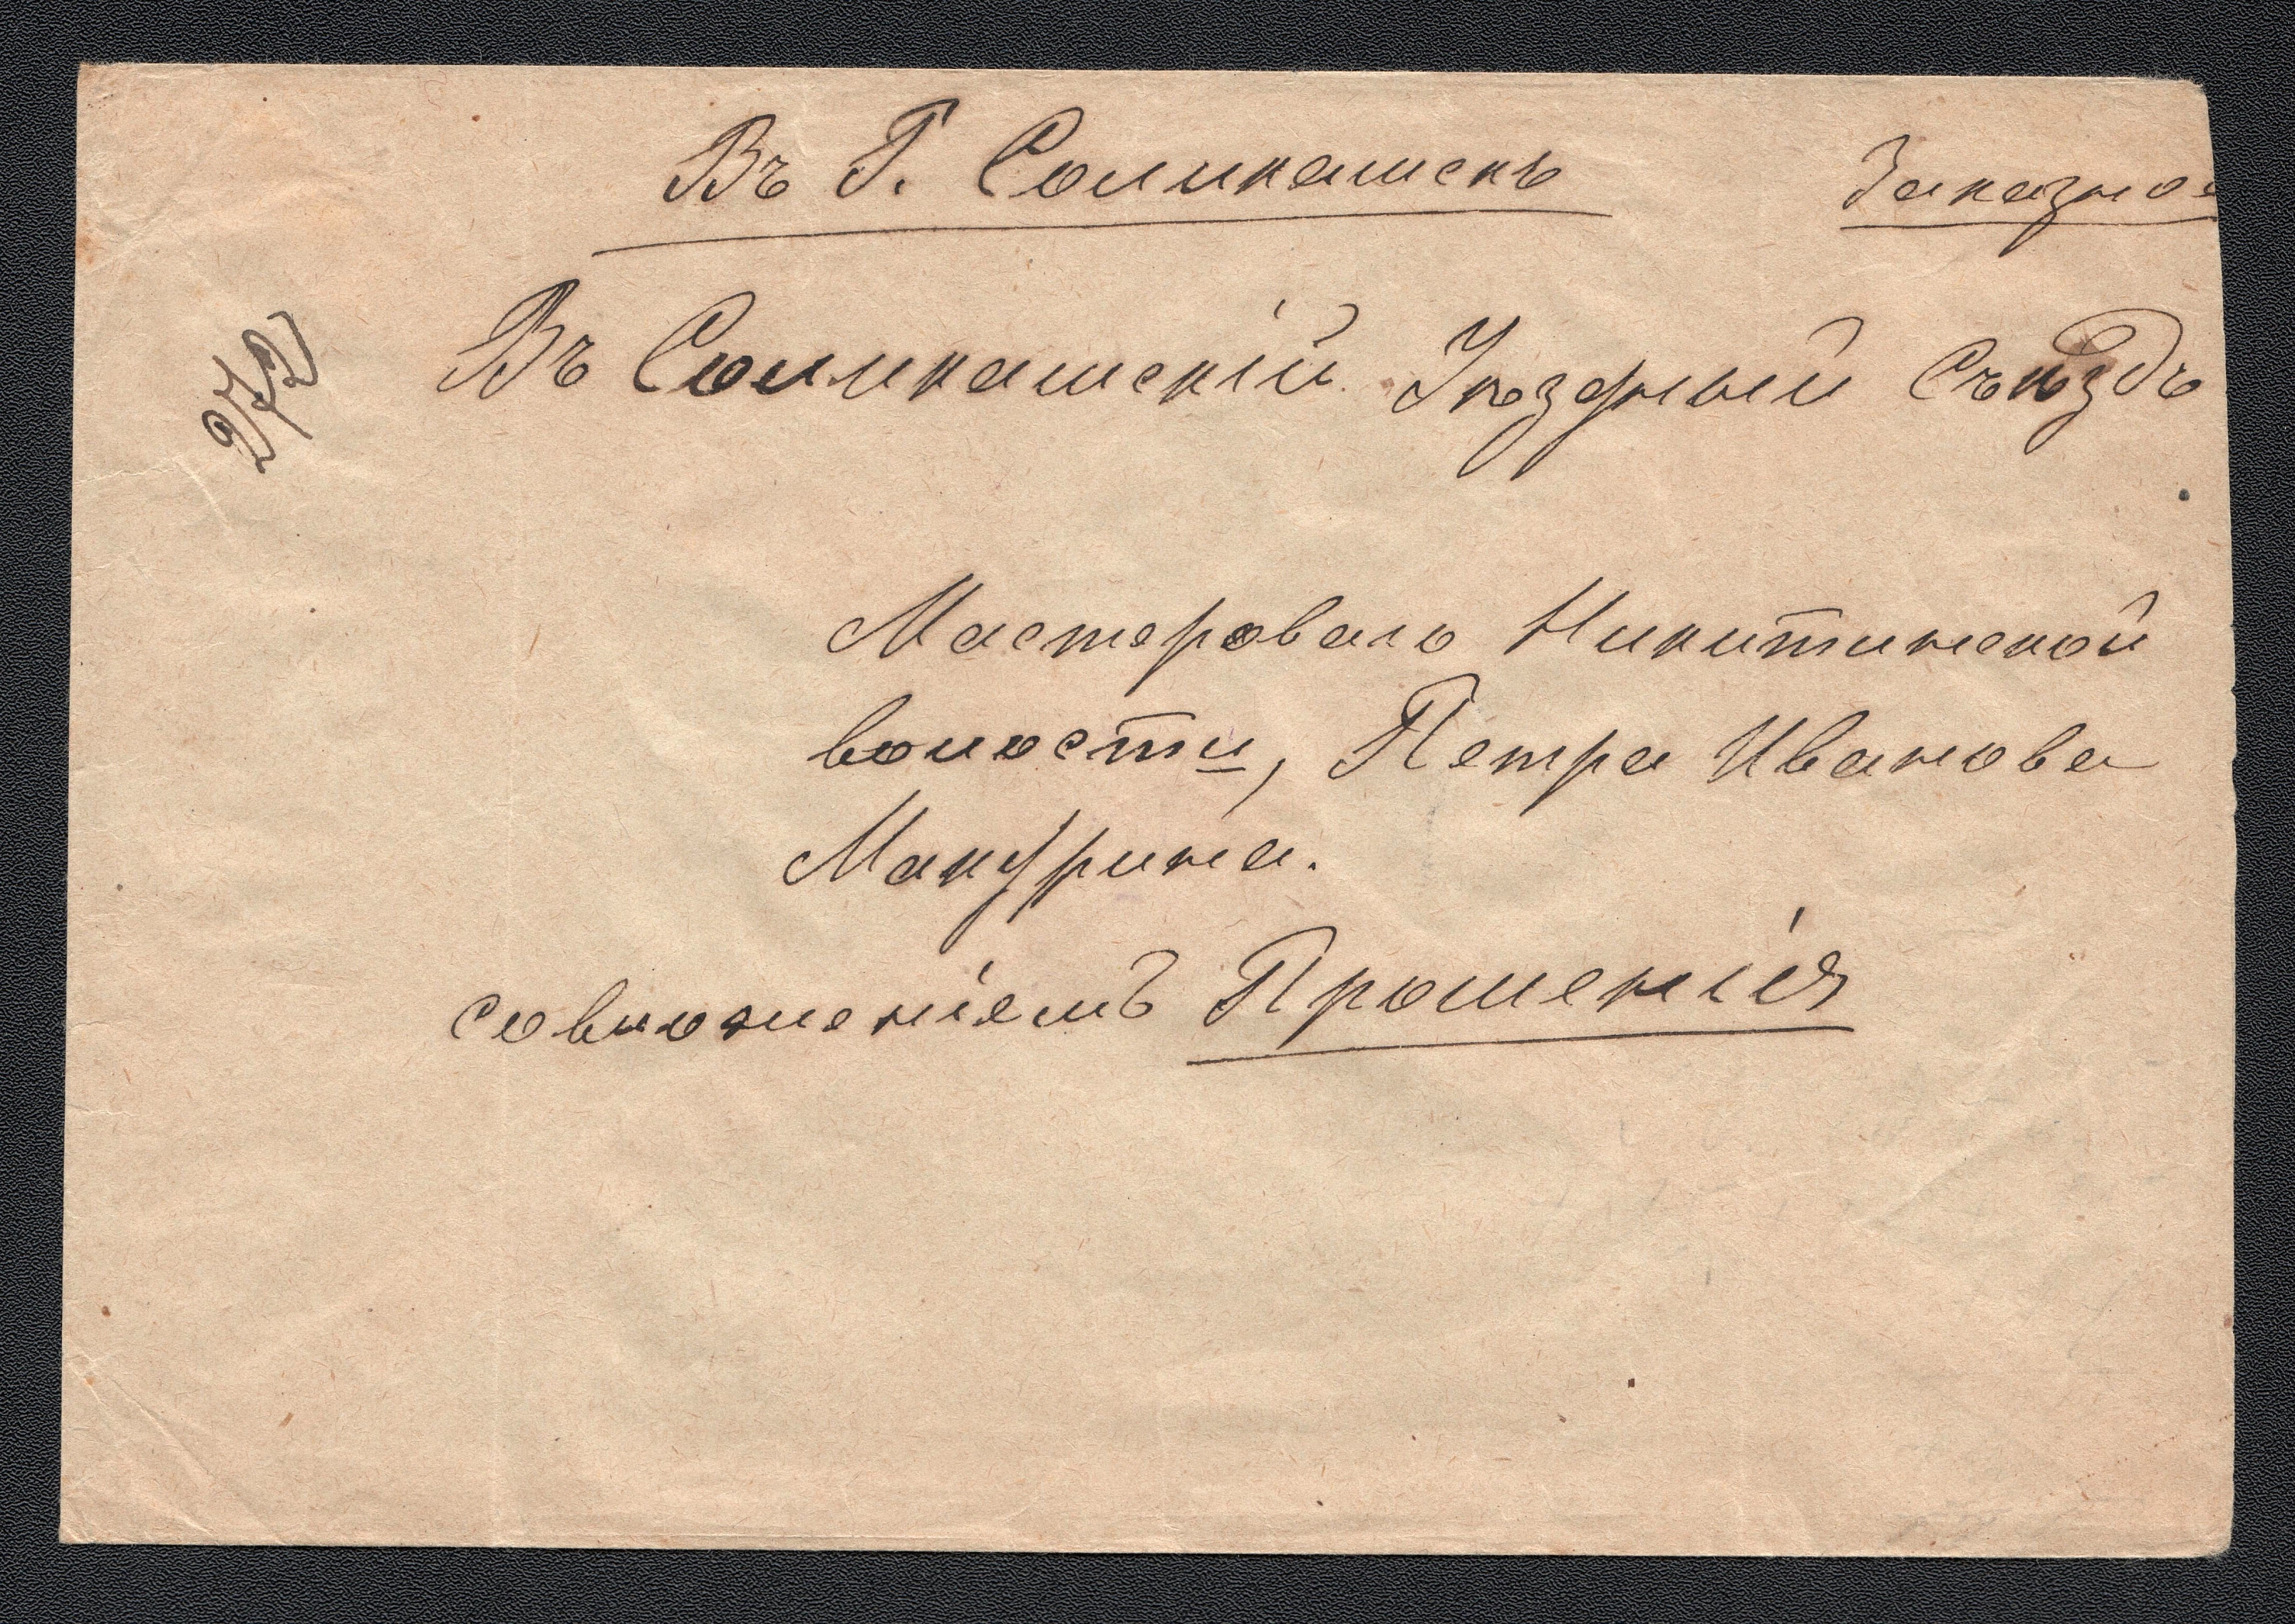 Въ Г. Соликамскъ
Заказное
Въ Соликамскій Уѣздный Съѣздъ
272
Мастероваго Никитинской
волости, Петра Иванова
Макурина.
совложеніемъ Прошенія